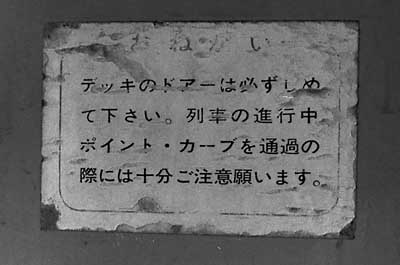 おねがい
デッキのドアーは必ずしめ
て下さい。列車の進行中
ポイント・カーブを通過の
際には十分ご注意願います。